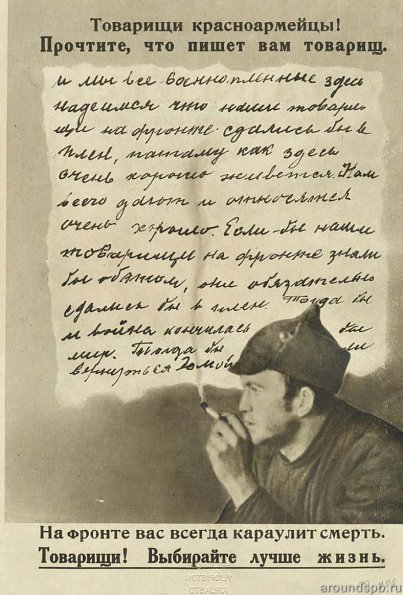 Товарищи красноармейцы!
Прочтите, что пишет вам товарищ.
и мы все военно пленные здесь
надеимся что наши товари-
щи на фронте сдались бы в
плен, потаму как здесь
очень хорошо живется. Нам
всего дают и относятся
очень хорошо. Если-бы наши
товарищи на фронте знали
бы об этом, они обязательно
сдались бы в плен. Тогда бы
и война кончилась бы
мир. Тогда бы ли
вернуться домой
На фронте вас всегда караулит смерть.
Товарищи! Выбирайте лучше жизнь.
aroundspb.ru